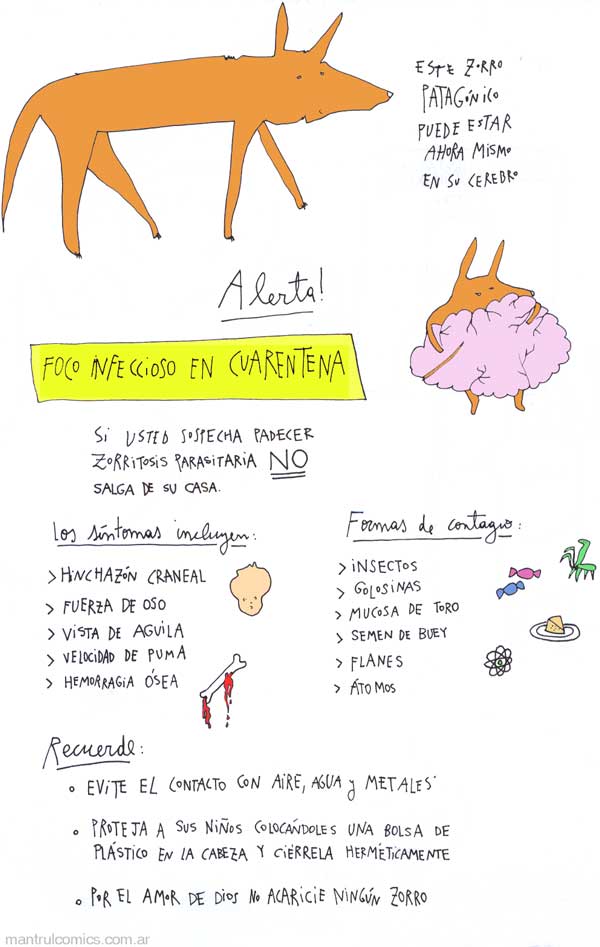 ESTE ZORRO
PATAGÓNICO
PUEDE ESTAR
AHORA MISMO
EN SU CEREBRO
Alerta!
FOCO INFECCIOSO EN CUARENTENA
Si USTED SOSPECHA PADECER
ZORRITOSIS PARASITARIA NO
SALGA DE SU CASA.
Los síntomas incluyen:
> HINCHAZÓN CRANEAL
> FUERZA DE OSO
> VISTA DE AGUILA
> VELOCIDAD DE PUMA
> HEMORRAGIA ÓSEA
Formas de contagio:
> INSECTOS
> GOLOSINAS
> MUCOSA DE TORO
> SEMEN DE BUEY
> FLANES
> ÁTOMOS
Recuerde:
• EVITE EL CONTACTO CON AIRE, AGUA y METALES
• PROTEJA A SUS NIÑOS COLOCÁNDOLES UNA BOLSA DE
PLÁSTICO EN LA CABEZA Y CIÉRRELA HERMÉTICAMENTE
• POR EL AMOR DE DIOS NO ACARICIE NINGÚN ZORRO
mantrulcomics.com.ar